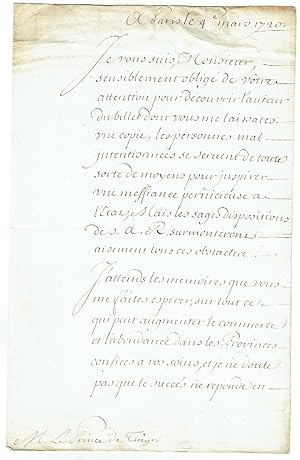 A Paris le 4e mars 1720.
Je vous suis, Monsieur,
sensiblement obligé de votre
attention pour decouvrir l'auteur
du billet dont vous me
vne copie, les personnes mal
intentionnées se servent de toute
sorte de moyens pour inspirer
vne meffiance pernicieuse a
Mais les sages dispositions
de S. A. R. surmonteront
aisement tous ces obstacles.
J'attends les memoires que vous
me faites esperer, sur tout ce
qui peut augmenter le commerce
et labondance dans les Provinces
confiées a vos soins, et je ne doute
pas que le succés ne reponde en
M. Le Prince de Tingry